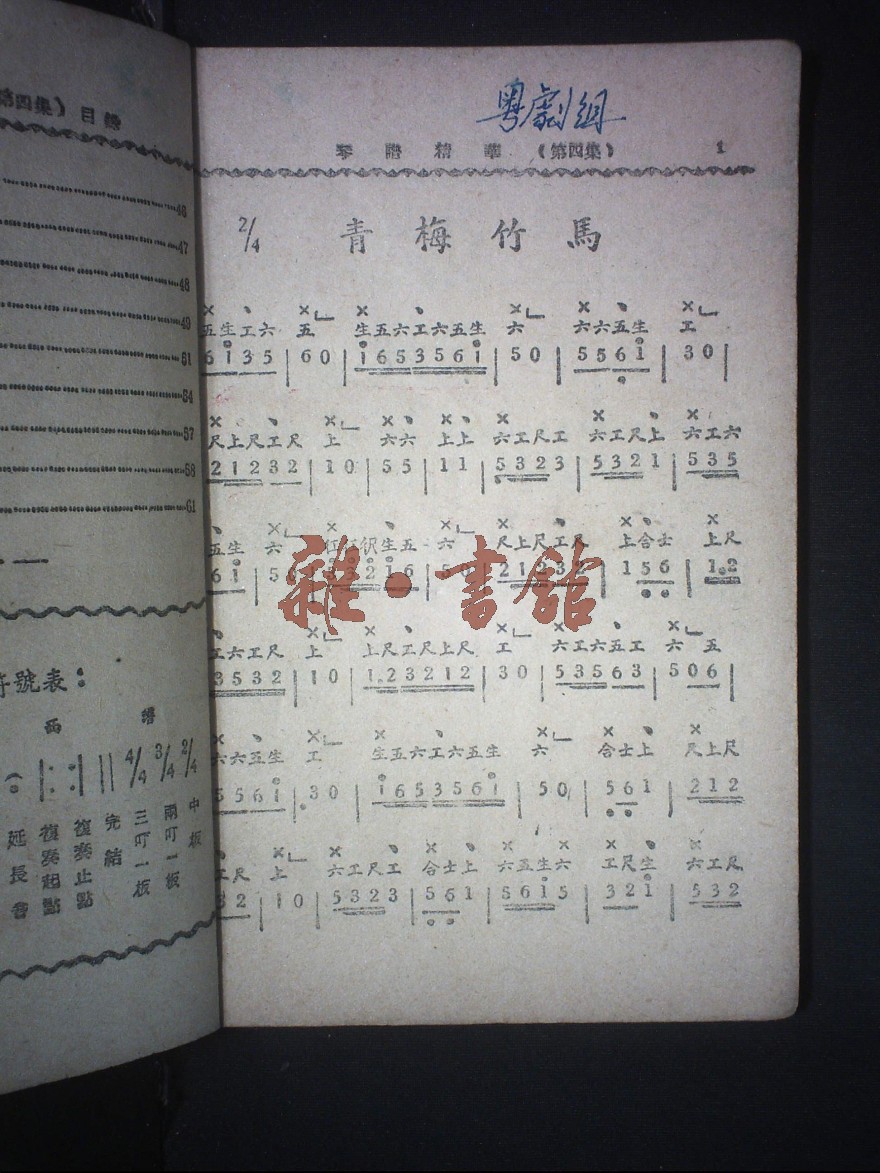 第四集）目錄
46
47
48
49
51
54
57
58
61
符號表：
西 譜
2/4 中板
3/4 兩叮一板
4/4 三叮一板
完結
復奏止點
復奏起點
延長音
粵劇組
琴譜精華（第四集） 1
2/4 青梅竹馬
五生工六 五 生五六工六五生 六 六六五生 工
6 i 3 5 | 6 0 | i 6 5 3 5 6 i | 5 0 | 5 5 6 i | 3 0 |
尺上尺工尺 上 六六 上上 六工尺工 六工尺上 六工六
2 1 2 3 2 | 1 0 | 5 5 | 1 1 | 5 3 2 3 | 5 3 2 1 | 5 3 5
五生 六 生五 六 尺上尺工尺 上合士 上尺
6 i | 5 i 6 | 2 1 2 3 2 | 1 5 6 | 1. 2
工六工尺 上 上尺工尺上尺 工 六工六五工 六 五
3 5 3 2 | 1 0 | 1. 2 3 2 1 2 | 3 0 | 5 3 5 6 3 | 5 0 6 |
六六五生 工 生五六工六五生 六 合士上 尺上尺
5 5 6 i | 3 0 | i 6 5 3 5 6 i | 5 0 | 5 6 1 | 2 1 2
工尺 上 六工尺工 合士上 六五生六 工尺生 六工尺
3 2 | 1 0 | 5 3 2 3 | 5 6 1 | 5 6 i 5 | 3 2 i | 5 3 2
雜·書館